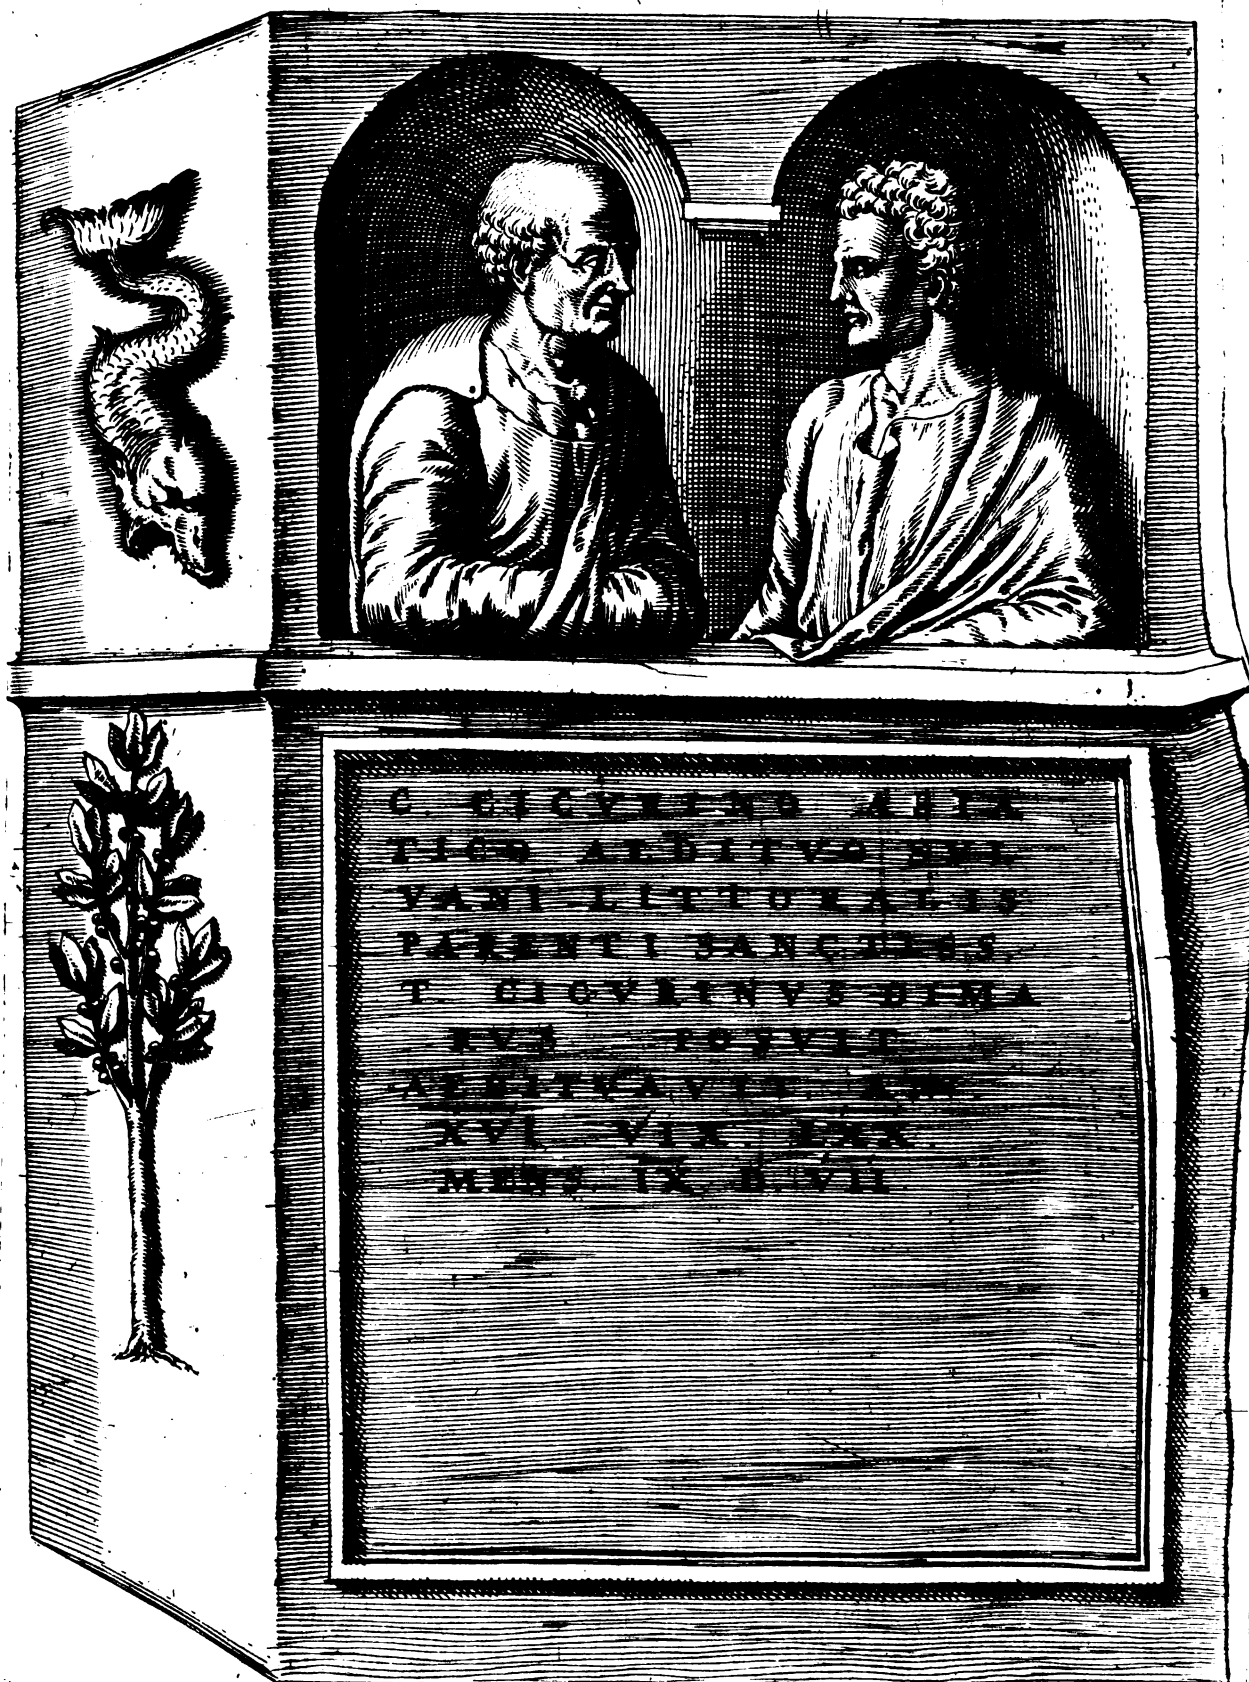 C. CICVRINO ASIA
TICO AEDITVO SYL
VANI LITTORALIS
PARENTI SANCTISS.
T. CICVRINVS SIMA
RVS POSVIT
AEDITVAVIT. AN.
XVI VIX. LXX.
MENS. IX D. VII